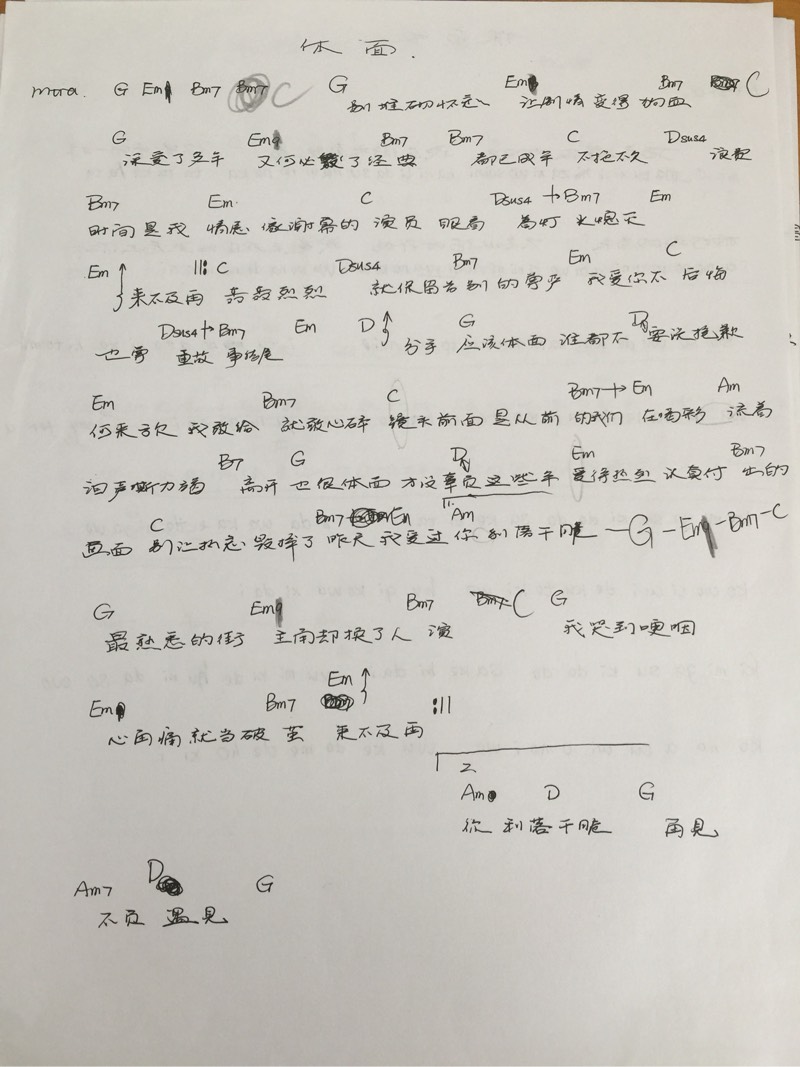 体面.
intro. G Em Bm7 C G Em Bm7 C
别堆砌怀念 让剧情变得狗血
G Em Bm7 Bm7 C Dsus4
深爱了多年 又何必毁了经典 都已成年 不拖不欠 浪费
Bm7 Em C Dsus4 → Bm7 Em
时间是我 情愿 像谢幕的 演员 眼看 着灯 火熄灭
Em ‖: C Dsus4 Bm7 Em C
来不及再 轰轰烈烈 就保留告别的尊严 我爱你不 后悔
Dsus4 → Bm7 Em D G D
也尊 重故 事结尾 分手 应该体面 谁都不 要说抱歉
Em Bm7 C Bm7 → Em Am
何来亏欠 我敢给 就敢心碎 镜头前面 是从前 的我们 在喝彩 流着
B7 G D Em Bm7
泪声嘶力竭 离开 也很体面 才没辜负 这些年 爱得热烈 认真付 出的
C Bm7 Em 1. Am
画面 别让执念 毁掉了 昨天 我爱过 你 利落干脆 —G—Em—Bm7—C
G Em Bm7 C G
最熟悉的街 主角却换了人 演 我哭到哽咽
Em Bm7 Em :‖
心再痛就当破 茧 来不及再
2
Am D G
你 利落干脆 再见
Am7 D G
不负 遇见